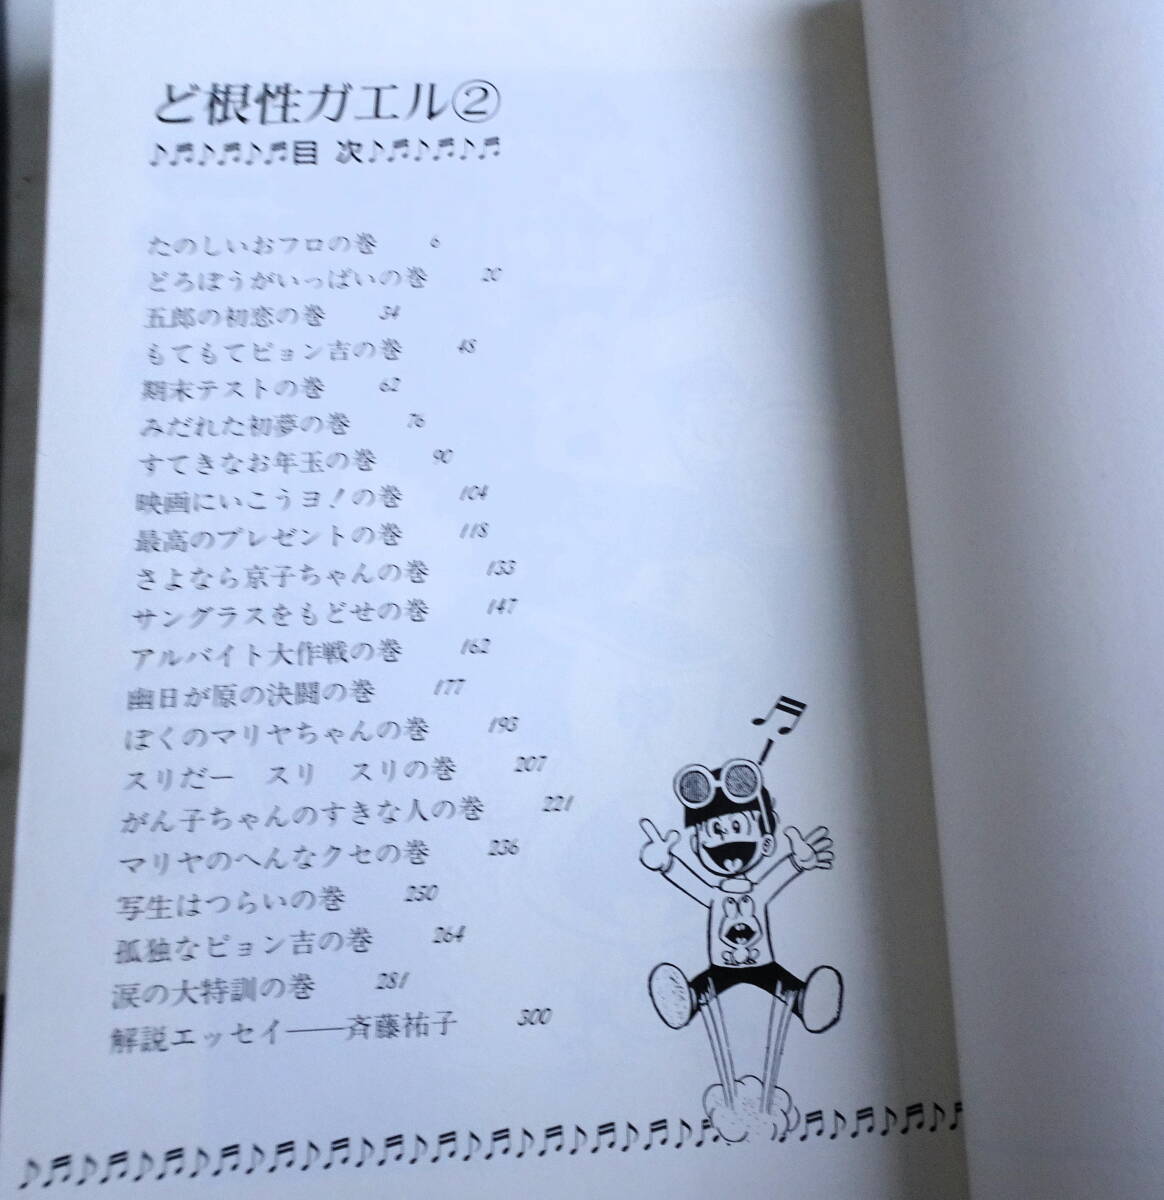 ど根性ガエル②
♪♬♪♬♪♬目 次♪♬♪♬♪♬
たのしいおフロの巻 6
どろぼうがいっぱいの巻 20
五郎の初恋の巻 34
もてもてピョン吉の巻 48
期末テストの巻 62
みだれた初夢の巻 76
すてきなお年玉の巻 90
映画にいこうヨ!の巻 104
最高のプレゼントの巻 118
さよなら京子ちゃんの巻 133
サングラスをもどせの巻 147
アルバイト大作戦の巻 162
幽日が原の決闘の巻 177
ぼくのマリヤちゃんの巻 193
スリだー スリ スリの巻 207
がん子ちゃんのすきな人の巻 221
マリヤのへんなクセの巻 236
写生はつらいの巻 250
孤独なピョン吉の巻 264
涙の大特訓の巻 281
解説エッセイ——斉藤祐子 300